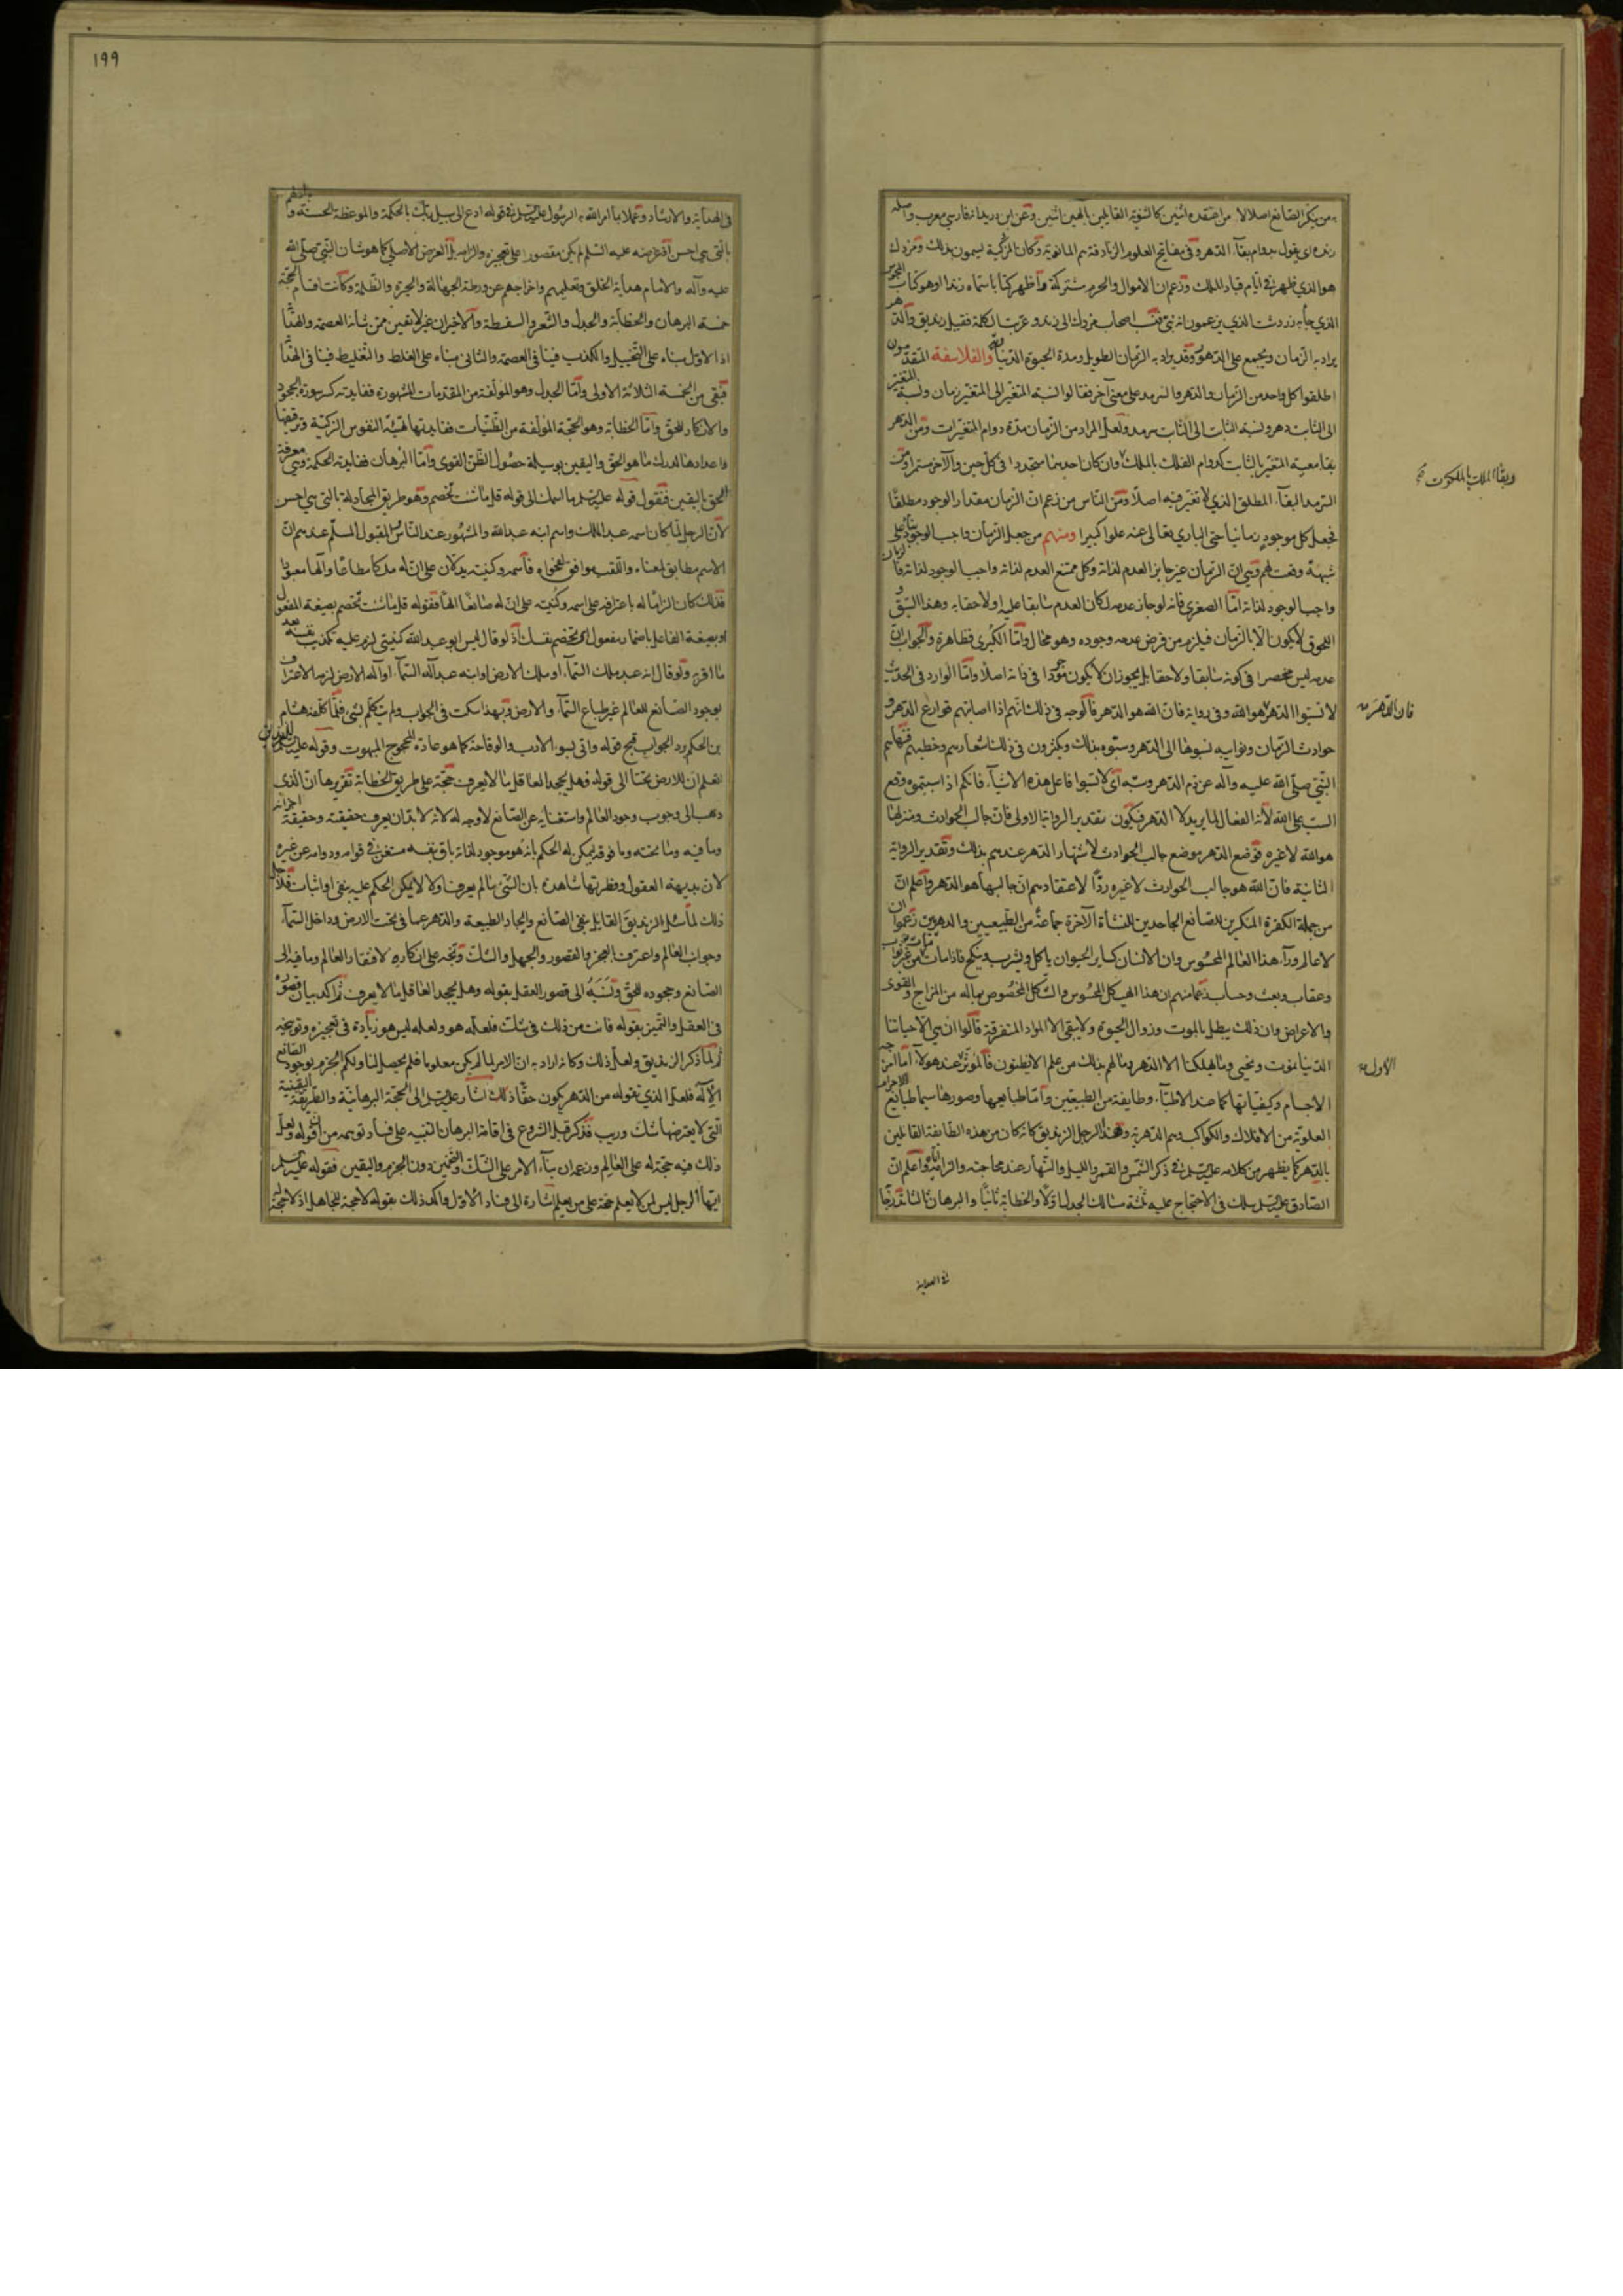 من ينكر الصانع اصلا لا من اعتقده اثنين كالثنوية القايلين بالهين اثنين وعن ابن دريد انه فارسي معرب واصله
زنده اي يقول بدوام بقاء الدهر وفي مفاتيح العلوم الزنادقة هم المانوية وكان المزدكية يسمون بذلك ومزدك
هو الذي ظهر في ايام قباد الملك وزعم ان الاموال والحرم مشتركة واظهر كتابا سماه زندا وهو كتاب المجوس
الذي جاء به زردشت الذي يزعمون انه نبي فنسب اصحاب مزدك الى زند وعربت الكلمة فقيل زنديق والدهر
يراد به الزمان ويجمع على الدهور وقد يراد به الزمان الطويل ومدة الحيوة الدنيا والفلاسفة المتقدمون
اطلقوا كل واحد من الزمان والدهر والسرمد على معنى آخر فقالوا نسبة المتغير الى المتغير زمان ونسبة المتغير
الى الثابت دهر ونسبة الثابت الى الثابت سرمد ولعل المراد من الزمان مدة دوام المتغيرات ومن الدهر
بقاء معية المتغير بالثابت كدوام الفلك بالملك وان كان احدهما متجددا في كل حين والآخر مستمرا ومن
السرمد البقاء المطلق الذي لا تغير فيه اصلا ومن الناس من زعم ان الزمان مقدار الوجود مطلقا
فجعل كل موجود زمانيا حتى الباري تعالى عنه علوا كبيرا ومنهم من جعل الزمان واجب الوجود بناء على
شبهة وقعت لهم وهي ان الزمان غير جايز العدم لذاته وكل ممتنع العدم لذاته واجب الوجود لذاته فالزمان
واجب الوجود لذاته اما الصغرى فانه لو جاز عدمه لكان العدم سابقا عليه او لاحقا به وهذا السبق
واللحوق لا يكون الا بالزمان فيلزم من فرض عدمه وجوده وهو محال واما الكبرى فظاهرة والجواب ان
عدمه ليس منحصرا في كونه سابقا ولاحقا بل يجوز ان لا يكون موجودا في ذاته اصلا واما الوارد في الحديث
لا تسبوا الدهر هو الله وفي رواية فان الله هو الدهر فالوجه في ذلك انهم اذا اصابتهم قوارع الدهر و
حوادث الزمان ونوايبه نسبوها الى الدهر وسبوه بذلك ويكثرون في ذلك اشعارهم وخطبهم فنهاهم
النبي صلى الله عليه وآله عن ذم الدهر وسبه اي لا تسبوا فاعل هذه الاشياء فانكم اذا سببتموه وقع
السب على الله لانه الفعال لما يريد لا الدهر فيكون تقدير الرواية الاولى فان جالب الحوادث ومنزلها
هو الله لا غيره فوضع الدهر موضع جالب الحوادث لاشتهار الدهر عندهم بذلك وتقدير الرواية
الثانية فان الله هو جالب الحوادث لا غيره ردا لاعتقادهم ان جالبها هو الدهر واعلم ان
من جملة الكفرة المنكرين للصانع الجاحدين للنشأة الآخرة جماعة من الطبيعيين والدهريين زعموا ان
لا عالم وراء هذا العالم المحسوس وان الانسان كساير الحيوان ياكل ويشرب وينكح فاذا مات من غير ثواب
وعقاب وبعث وحساب زعما منهم ان هذا الهيكل المحسوس والشكل المخصوص بما له من المزاج والقوى
والاعراض وان ذلك يبطل بالموت وزوال الحيوة ولا يبقى الا المواد المتفرقة قالوا ان هي الا حياتنا
الدنيا نموت ونحيى وما يهلكنا الا الدهر وما لهم بذلك من علم ان هم الا يظنون فالموثر عند هولاء اما امزجة
الاجسام وكيفياتها كما عند الاطباء وطايفة من الطبيعيين واما طبايعها وصورها سيما طبايع الاجرام
العلوية من الافلاك والكواكب وهم الدهرية وهذا الرجل الزنديق كانه كان من هذه الطايفة القائلين
بالدهر كما يظهر من كلامه عليه السلام في ذكر الشمس والقمر والليل والنهار عند محاجته والزاميه واعلم ان
الصادق عليه السلام سلك في الاحتجاج عليه ثلثة مسالك الجدل اولا والخطابة ثانيا والبرهان ثالثا تدرجا
وبقاء الملك بالملكوت
فان الدهر
الاول
في الهداية
١٩٩
في الهداية والارشاد وعملا بما امر الله به الرسول عليه السلام في قوله ادع الى سبيل ربك بالحكمة والموعظة الحسنة وجادلهم
بالتي هي احسن اذ غرضه عليه السلام لم يكن مقصورا على تعجيزه والزامه بل الغرض الاصلي كما هو شان النبي صلى الله
عليه وآله والامام هداية الخلق وتعليمهم واخراجهم عن ورطة الجهالة والحيرة والظلمة وكانت اقسام الحجة
خمسة البرهان والخطابة والجدل والشعر والسفسطة والاخيران غير لايقين ممن شانه العصمة والهداية
اذ الاول بناء على التخييل والكذب فينافي العصمة والثاني بناء على الغلط والتغليط فينافي الهداية
فبقى من الخمسة الثلاثة الاولى واما الجدل وهو المؤلفة من المقدمات المشهورة ففايدته كسر سورة الجحود
والانكار للحق واما الخطابة وهو الحجة المؤلفة من الظنيات ففايدتها تهيئة النفوس الزكية وترقيقها
واعدادها لدرك ما هو الحق واليقين بوسيلة حصول الظن القوى واما البرهان ففايدته الحكمة وهي معرفة
الحق باليقين فنقول قوله عليه السلام ما اسمك الى قوله قل ما شئت تخصم وهو طريق المجادلة بالتي هي احسن
لان الرجل لما كان اسمه عبد الملك واسم ابنه عبد الله والمشهور عند الناس المقبول المسلم عندهم ان
الاسم مطابق لمعناه واللقب موافق لفحواه فاسمه وكنيته يدلان على ان له ملكا مطاعا والها معبودا
فذلك كان الزاما له باعترافه على اسمه وكنيته على ان له صانعا الها فقوله قل ما شئت تخصم بصيغة المفعول
او بصيغة الفاعل باضمار مفعول اي تخصم نفسك اذ لو قال ليس ابو عبد الله كنيتي لزم عليه تكذيب نفسه بعد
ما اقر به ولو قال انه عبد ملك السماء او ملك الارض او ابنه عبد آله السماء او آله الارض لزمه الاعتراف
بوجود الصانع للعالم غير طباع السماء والارض وبهذا سكت في الجواب ولم يتكلم بشيء فلما كلفه هشام
بن الحكم رد الجواب قبح قوله واتى بسوء الادب والوقاحة كما هو عادة المحجوج المبهوت وقوله عليه السلام للزنديق
اتعلم ان للارض تحتا الى قوله فهل يجحد العاقل ما لا يعرف حجة على طريق الخطابة تقريرها ان الذي
ذهب الى وجوب وجود العالم واستغنايه عن الصانع لا وجه له لانه لا بد ان يعرف حقيقته وحقيقة اجزائه
وما فيه وما تحته وما فوقه ليمكن له الحكم بانه هو موجود لذاته باق بنفسه مستغن في قوامه ودوامه عن غيره
لان بديهة العقول وفطرتها شاهدة بان الشئ ما لم يعرف اولا لا يمكن الحكم عليه بنفي او اثبات فلاجل
ذلك لما سئل الزنديق القايل بنفي الصانع وايجاد الطبيعة والدهر عما في تحت الارض وداخل السماء
وجوانب العالم واعترف بالعجز والقصور والجهل والشك وبخه على انكاره لافتقار العالم وما فيه الى
الصانع وجحوده للحق ونسبه الى قصور العقل بقوله وهل يجحد العاقل ما لا يعرف ثم اكد بيان قصوره
في العقل والتميز بقوله فانت من ذلك في شك فلعله هو ولعله ليس هو زيادة في تعجيزه وتوبيخه
ثم لما ذكر الزنديق ولعل ذلك وكانه اراد به ان الامر لما لم يكن معلوما فلم يحصل لنا ولكم الجزم بوجود الصانع
الاله فلعل الذي نقوله من الدهر يكون حقا اذ ذلك اشار عليه السلام الى الحجة البرهانية والطريقة اليقينية
التي لا يعترضها شك وريب فذكر قبل الشروع في اقامة البرهان التنبيه على فساد توهمه من ان قوله ولعل
ذلك فيه حجة له على العالم وزعمه ان بناء الامر على الشك والتخمين دون الجزم واليقين فقوله عليه السلام
ايها الرجل ليس لمن لا يعلم حجة على من يعلم اشارة الى فساد الاول واكد ذلك بقوله لا حجة للجاهل اذ لا حجة